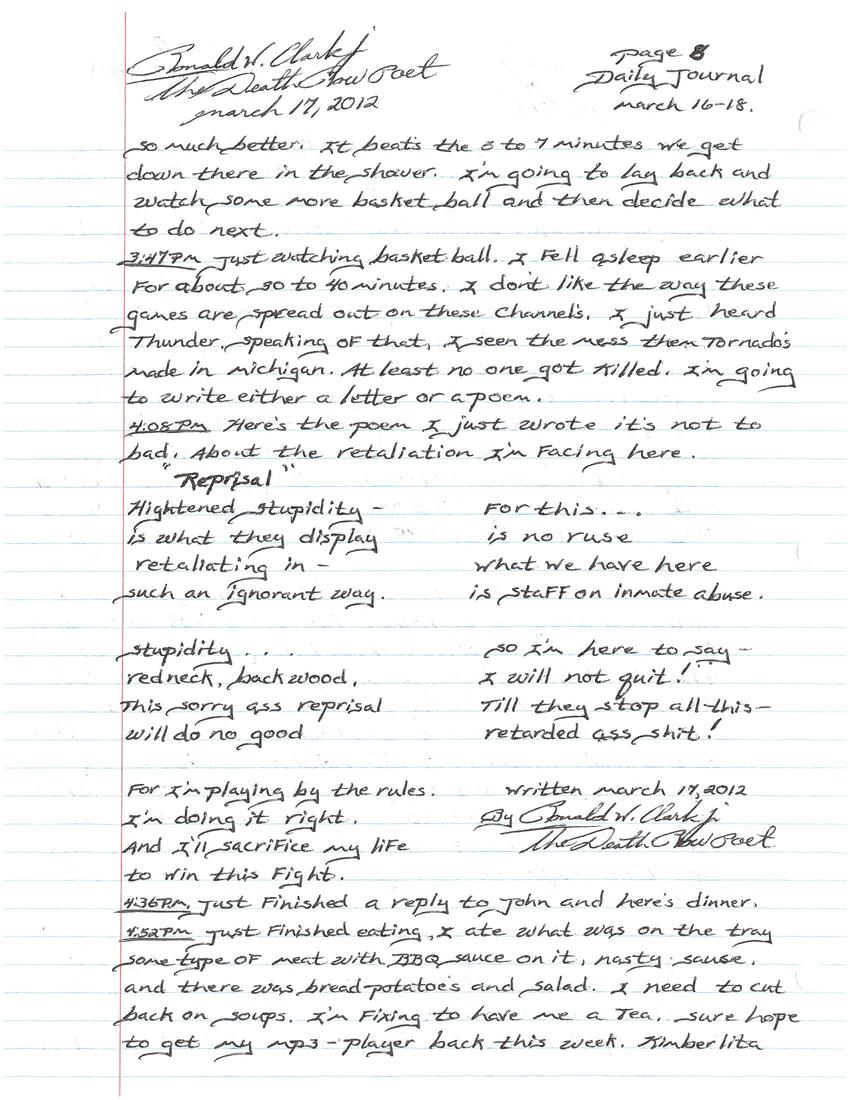 Ronald W. Clark jr
The Death Row Poet
march 17, 2012
page 8
Daily Journal
march 16-18.
so much better. It beats the 5 to 7 minutes we get
down there in the shower. I'm going to lay back and
watch some more basket ball and then decide what
to do next.
3:47PM just watching basket ball. I Fell asleep earlier
For about 30 to 40 minutes. I don't like the way these
games are spread out on these Channel's. I just heard
Thunder. speaking OF that, I seen the mess them Tornado's
made in michigan. At least no one got Killed. I'm going
to write either a letter or a poem.
4:08PM Here's the poem I just wrote it's not to
bad. About the retaliation I'm Facing here.
"Reprisal"
Hightened stupidity -
is what they display
retaliating in -
such an ignorant way.

stupidity . . .
redneck, backwood,
This sorry ass reprisal
will do no good

For I'm playing by the rules.
I'm doing it right.
And I'll sacrifice my life
to win this Fight.

For this. . .
is no ruse
what we have here
is staFF on inmate abuse.

so I'm here to say -
I will not quit!
Till they stop all this -
retarded ass shit!

written march 17, 2012
By Ronald W. Clark jr
The Death Row Poet
4:36PM. just Finished a reply to John and here's dinner.
4:52PM just Finished eating, I ate what was on the tray
some type OF meat with BBQ sauce on it, nasty sause.
and there was bread-potatoe's and salad. I need to cut
back on soups. I'm Fixing to have me a Tea. sure hope
to get my mp3-player back this week. Kimberlita